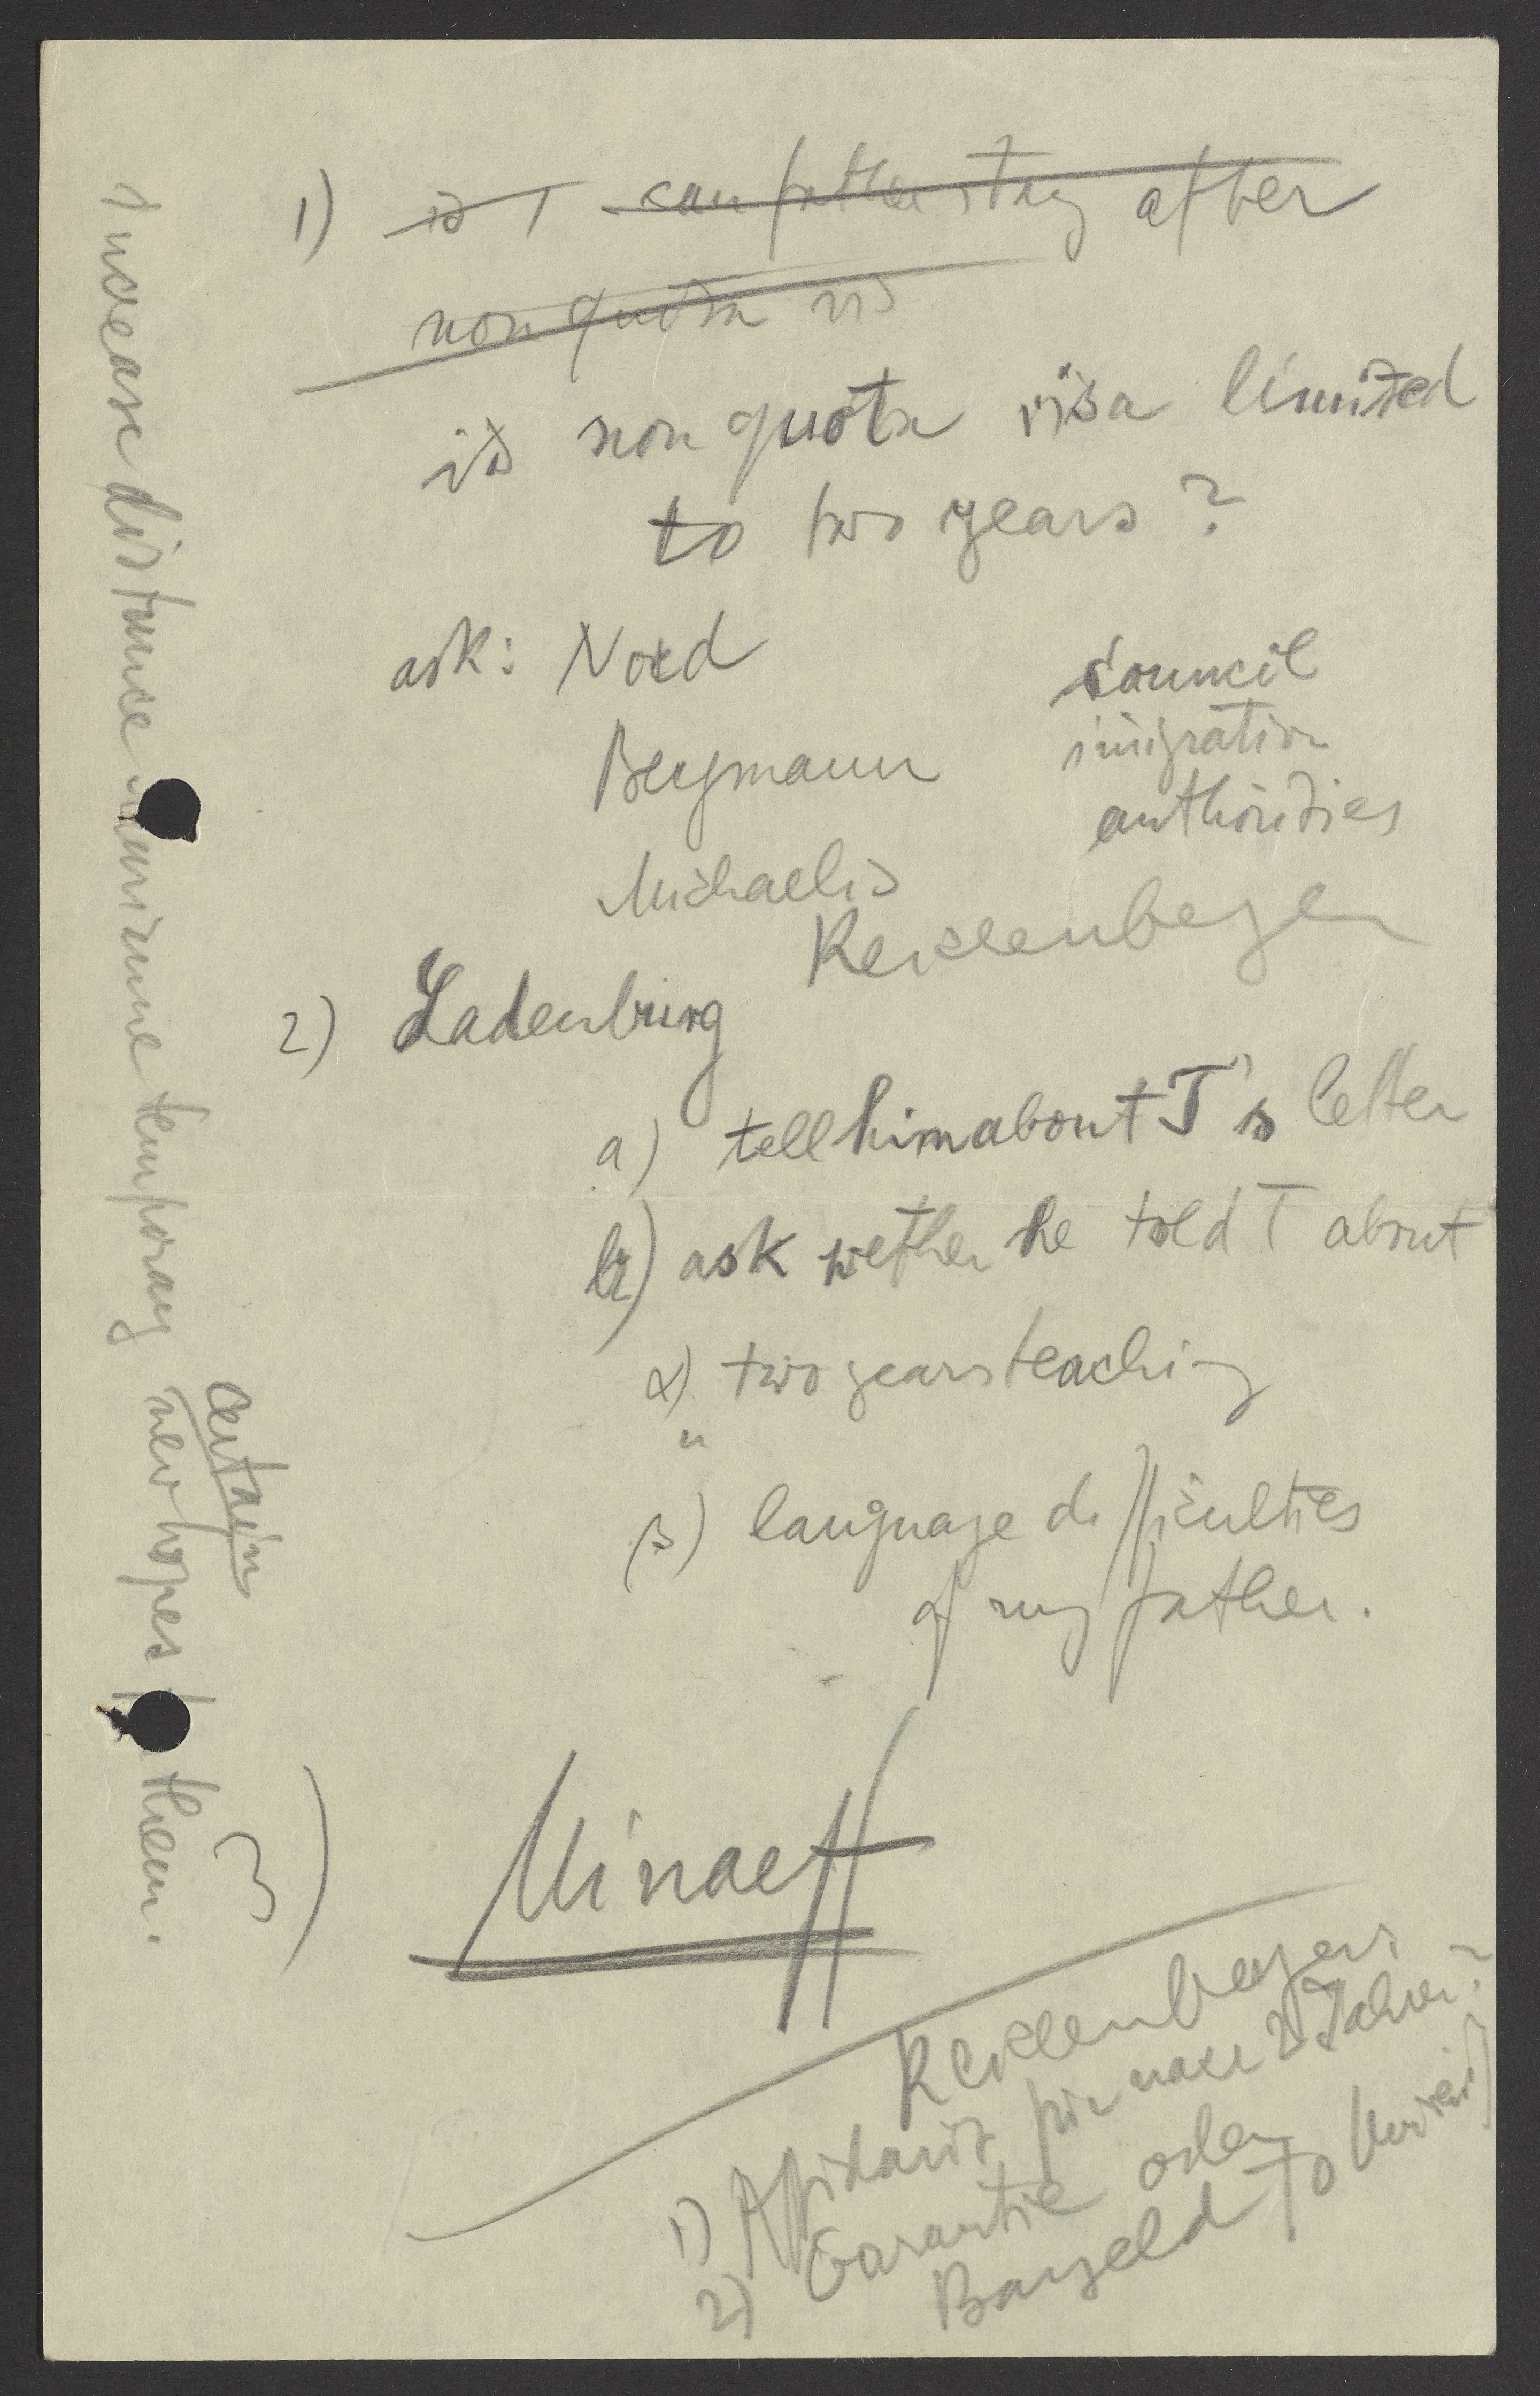 1) is T can father stay after
non quota vis
is non quota visa limited
to two years?
ask: Nord
Bergmann
Michaelis
Council
imigration
authorities
Reissenberger
2) Ladenburg
a) tell him about T's letter
b) ask wether he told T about
α) two years teaching
"
β) language difficulties
of my father.
3) Minaeff
Reissenberger:
1) Affidavit für nach 2 Jahren?
2) Garantie oder
Bargeld to
increase distance temporary
certain
new hopes them.